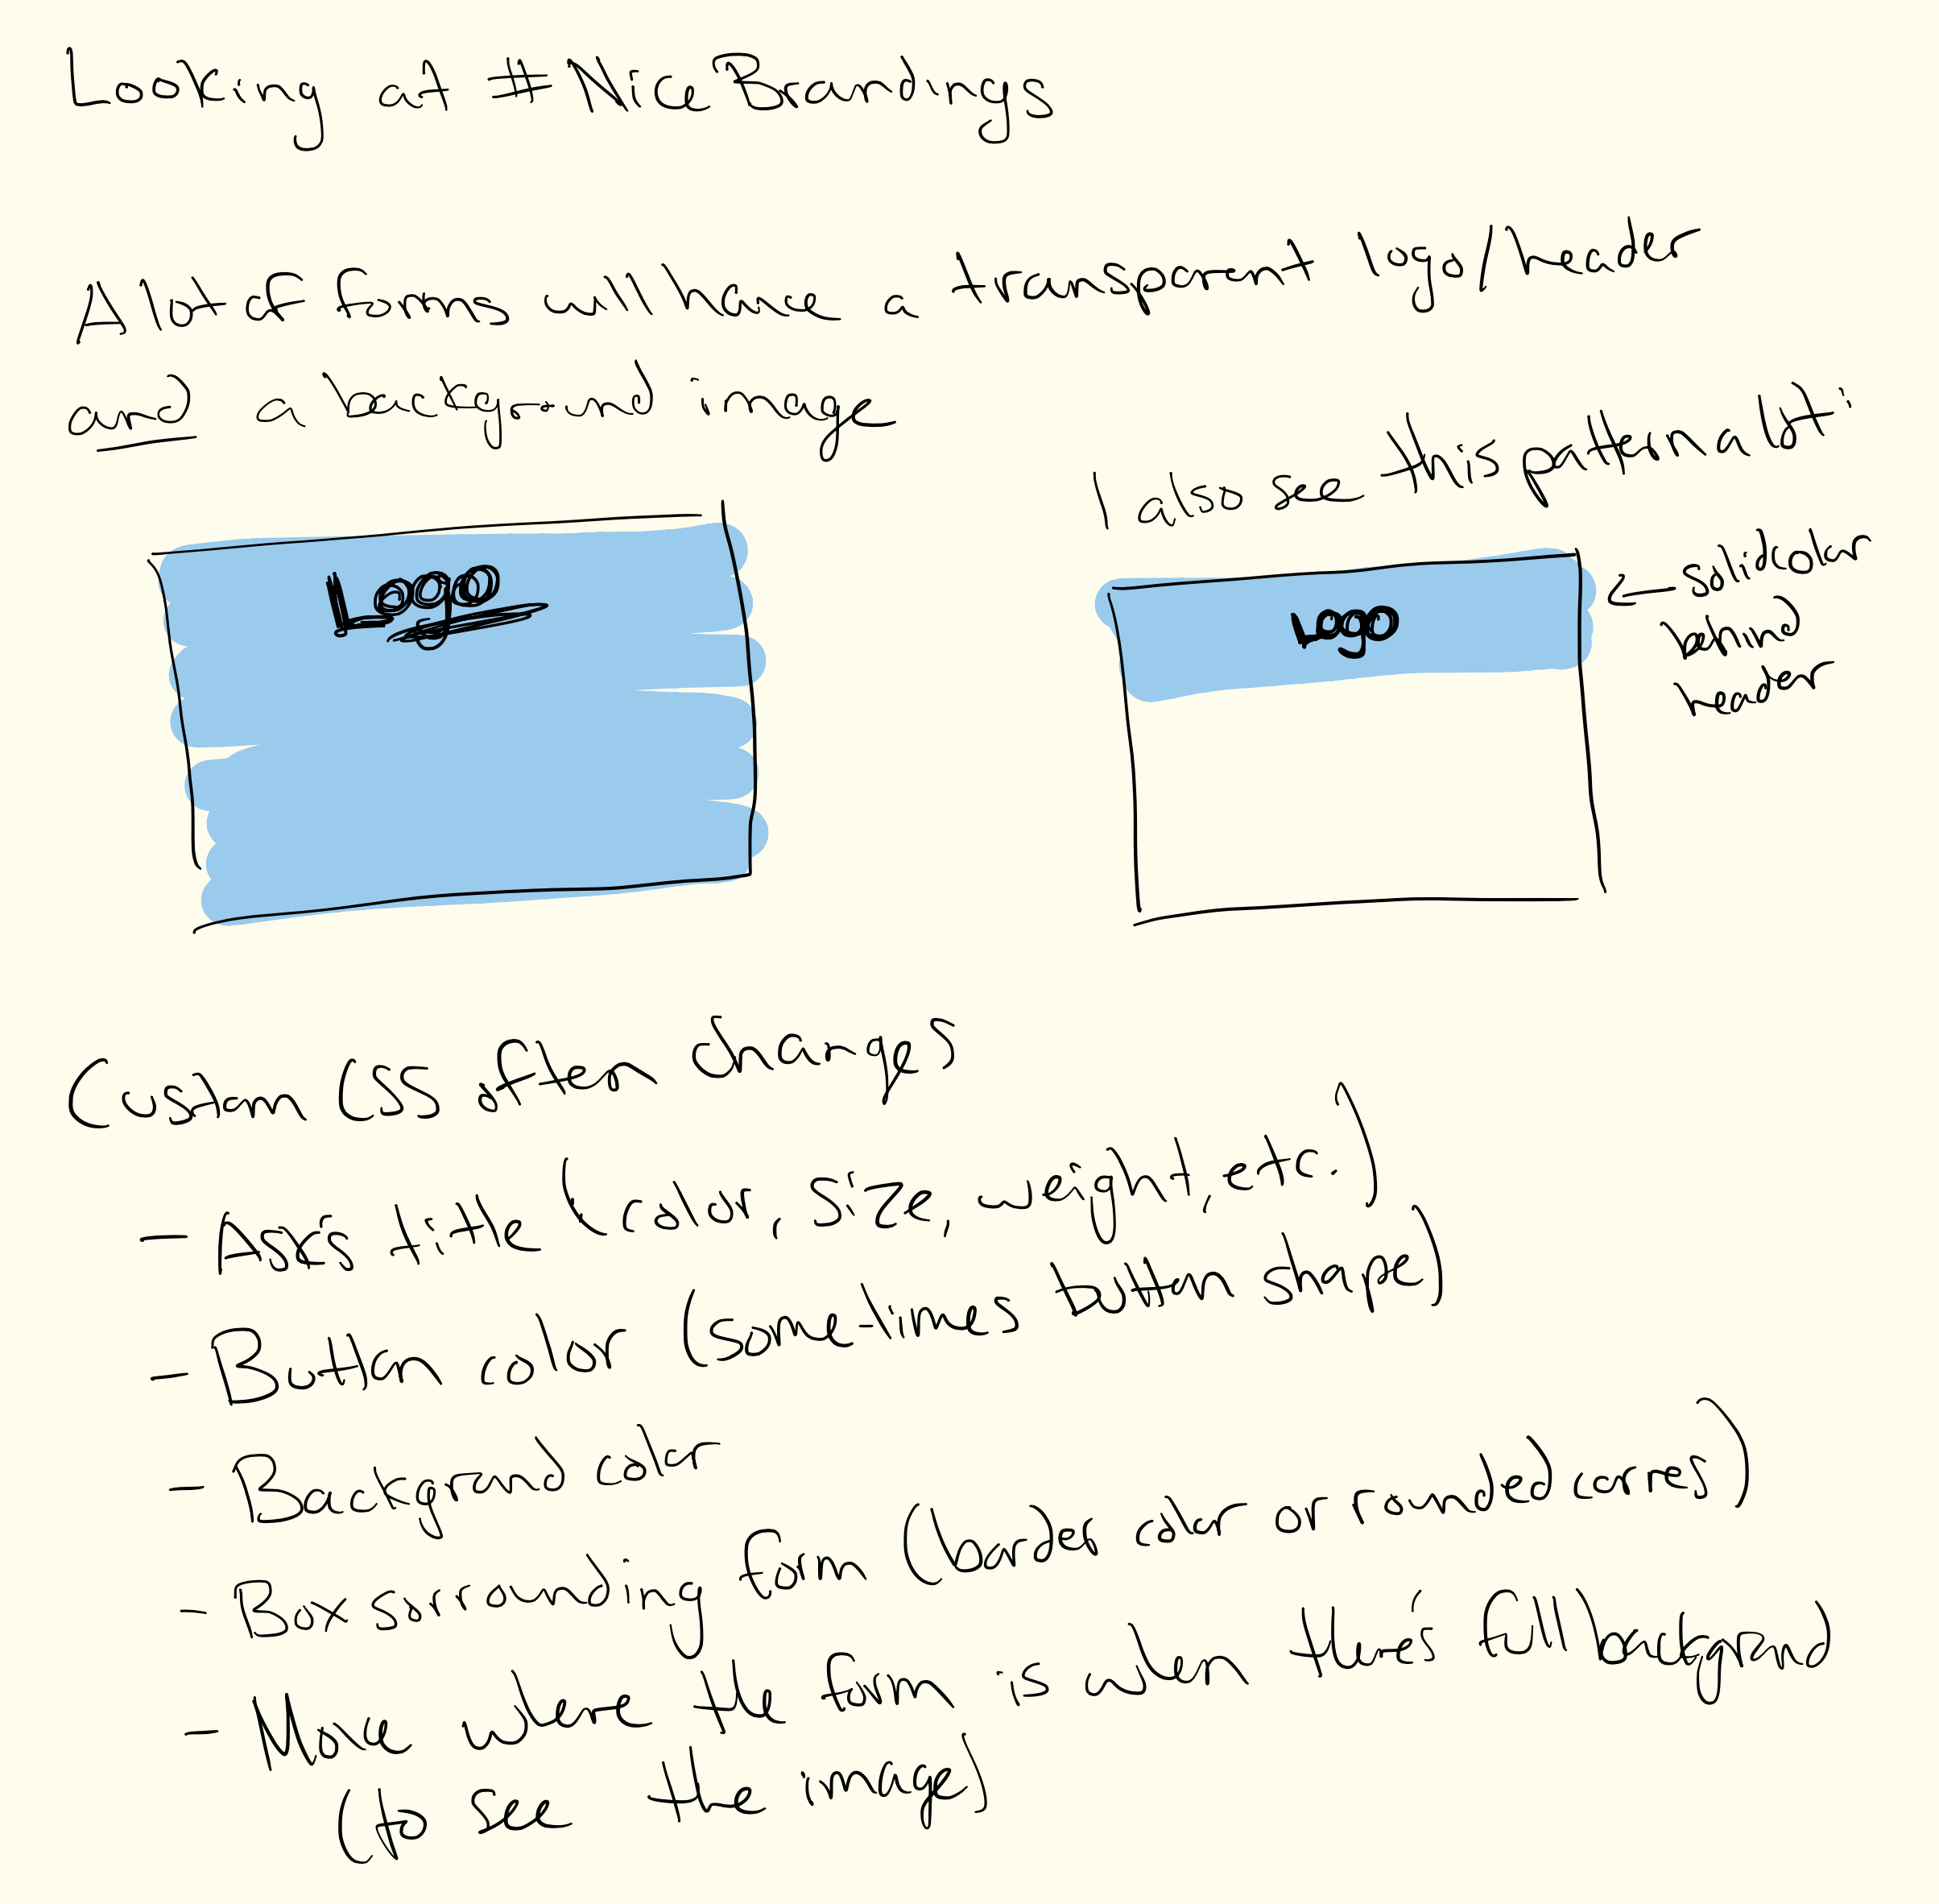 Looking at #NiceBrandings
A lot of forms will have a transparent logo/header
and a background image
I also see this pattern a lot:
Logo
Logo
<— solid color
behind
header
Custom CSS often changes
- Asks title (color, size, weight, etc.)
- Button color (some-times button shape)
- Background color
- Box surrounding form (border color or rounded corners)
- Move where the form is when there's full background
(to see the image)